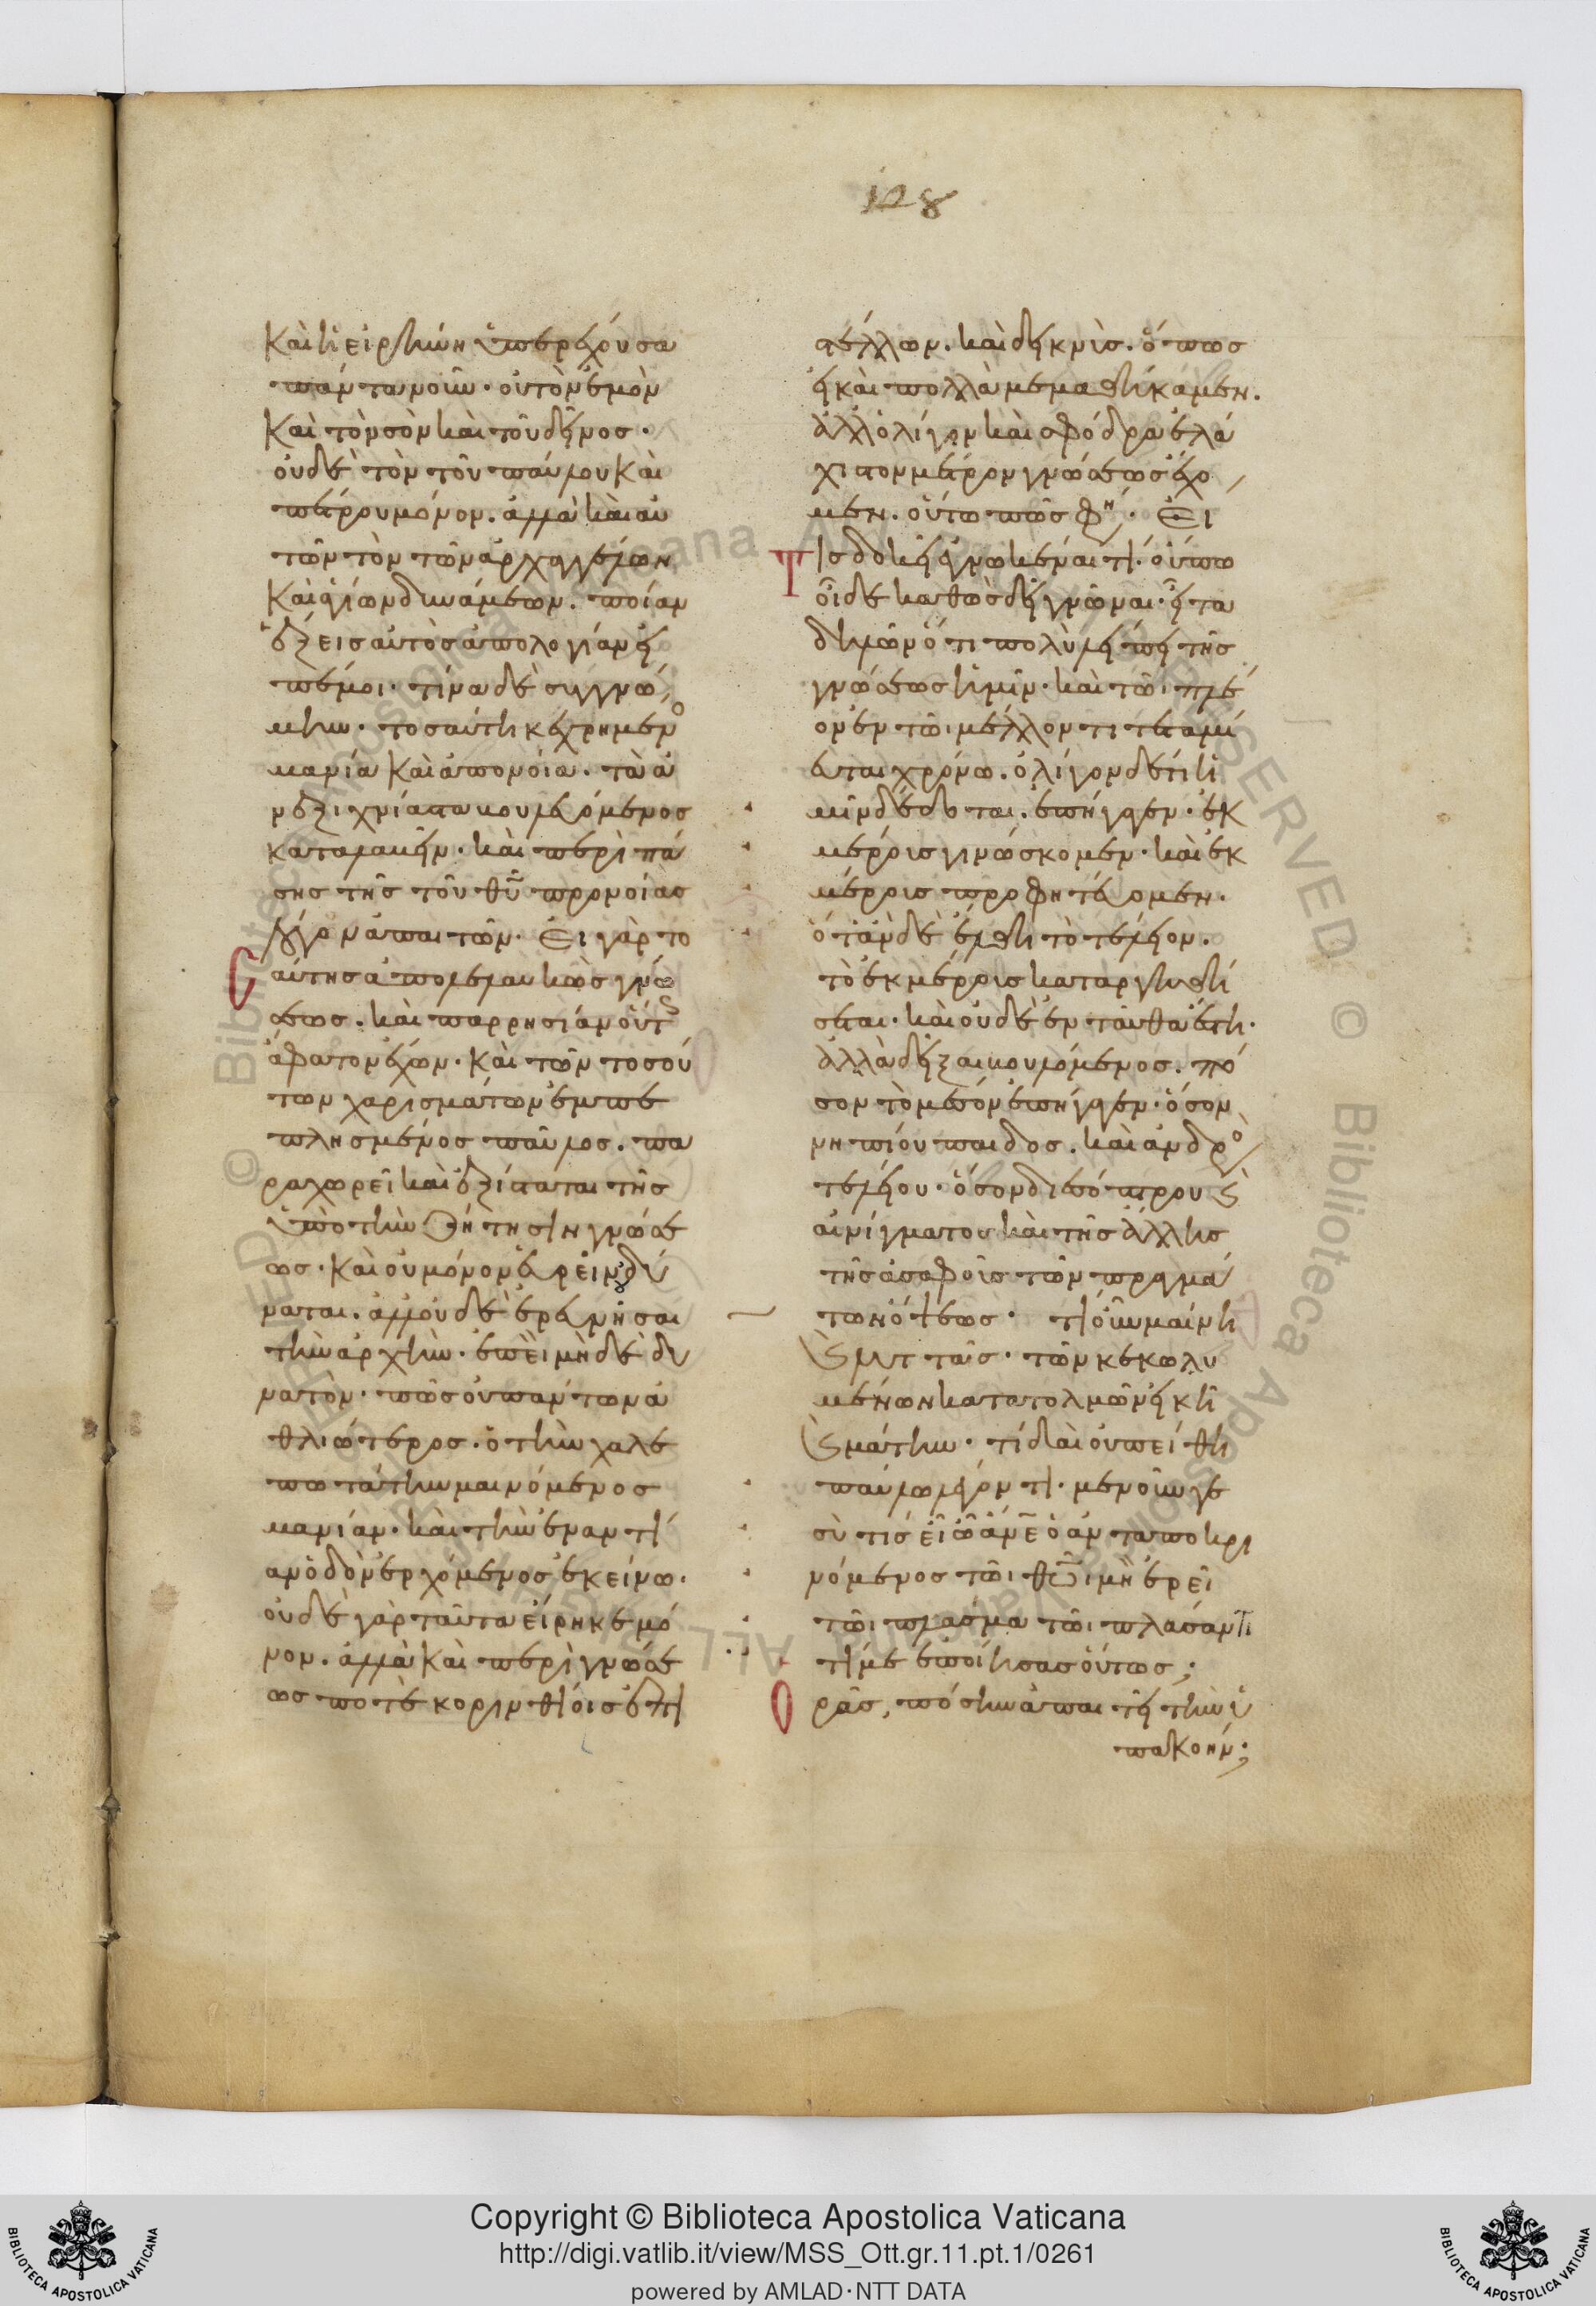 128
καὶ ἡ εἰρήνη ὑπερέχουσα
πάντα νοῦν. οὐ τὸν ἐμὸν
καὶ τὸν σὸν καὶ τοῦ δεῖνος.
οὐδὲ τὸν τοῦ παύλου καὶ
πέτρου μόνον. ἀλλὰ καὶ αὐ
τῶν τὸν τῶν ἀρχαγγέλων
καὶ τῶν ἄνω δυνάμεων. ποίαν
ἕξεις αὐτὸς ἀπολογίαν εἰ
πέ μοι. τίνα δὲ συγγνώ
μην. τοσαύτη κεχρημένο
μανία καὶ ἀπονοία. τὰ ἀ
νεξιχνίαστα βουλόμενος
καταλαβεῖν. καὶ περὶ πά
σης τῆς τοῦ θῦ προνοίας
λόγον ἀπαιτῶν. Εἰ γὰρ το
σαύτης ἀπολελαυκὼς γνώ
σεως. καὶ παρρησίαν οὕτ
ἄφατον ἔχων. καὶ τῶν τοσού
των χαρισμάτων ἐμπε
πλησμένος παῦλος. πα
ραχωρεῖ καὶ ἐξίσταται τῆς
ὑπὸ τὴν ζήτησιν γνώσε
ως. καὶ οὐ μόνον εὑρεῖν οὐ δύ
ναται. ἀλλ' οὐδὲ ἐρευνῆσαι
τὴν ἀρχήν. ἐπεὶ μὴ δὲ δυ
νατὸν. πῶς οὐ πάντων ἀ
θλιώτερος. ὁ τὴν χαλε
πωτάτην μαινόμενος
μανίαν. καὶ τὴν ἐναντί
αν ὁδὸν ἐρχόμενος ἐκείνω.
οὐδὲ γὰρ ταῦτα εἴρηκε μό
νον. ἀλλὰ καὶ περὶ γνώσε
ως ποτὲ κορινθίοις ἐπι
στέλλων. καὶ δεικνὺς. ὅπως
εἰ καὶ πολλὰ μεμαθήκαμεν.
ἀλλ' ὀλίγον καὶ σφόδρα ἐλά
χιστον μέτρον γνώσεως ἔχο
μεν. οὕτω πῶς φη. Εἰ
Τις δοκεῖ ἐγνωκέναι τι. οὔπω
οἶδε καθὼς δεῖ γνῶναι. εἶτα
δηλῶν ὅτι πολὺ λείπει τῆς
γνώσεως ἡμῖν. καὶ τῶι πλέ
ον ἐν τῶι μέλλοντι τεταμί
ευται χρόνω. ὀλίγον δέ τι ἡ
μῖν δέδοται. ἐπήγαγεν. ἐκ
μέρους γινώσκομεν. καὶ ἐκ
μέρους προφητεύομεν.
ὅταν δὲ ἔλθη τὸ τέλειον.
τὸ ἐκ μέρους καταργηθή
σεται. καὶ οὐδὲ ἐνταῦθα ἔστη.
ἀλλὰ δεῖξαι βουλόμενος. πό
σον τὸ μέσον ἐπήγαγεν. ὅσον
νηπίου παιδος. καὶ ἀνδρο
τελείου. ὅσον δι' ἐσόπτρου καὶ
αἰνίγματος καὶ τῆς ἄλλης
τῆς ἀσαφοῦς τῶν πραγμά
των ὄψεως. τί οὖν μαίνη
καὶ λυττᾶς. τῶν κεκωλυ
μένων κατατολμῶν εἰκῆ
καὶ μάτην. τί δαὶ οὐ πείθη
παύλω λέγοντι. μενοῦνγε
σὺ τίς εἶ ὦ ἄνε ὁ ἀνταποκρι
νόμενος τῶι θῶι μὴ ἐρεῖ
τῶι πλάσμα τῶι πλάσαντι
τί με ἐποίησας οὕτως;
Ορᾶς, πόσην ἀπαιτεῖ τὴν ὑ
πακοήν;
Copyright © Biblioteca Apostolica Vaticana
http://digi.vatlib.it/view/MSS_Ott.gr.11.pt.1/0261
powered by AMLAD·NTT DATA